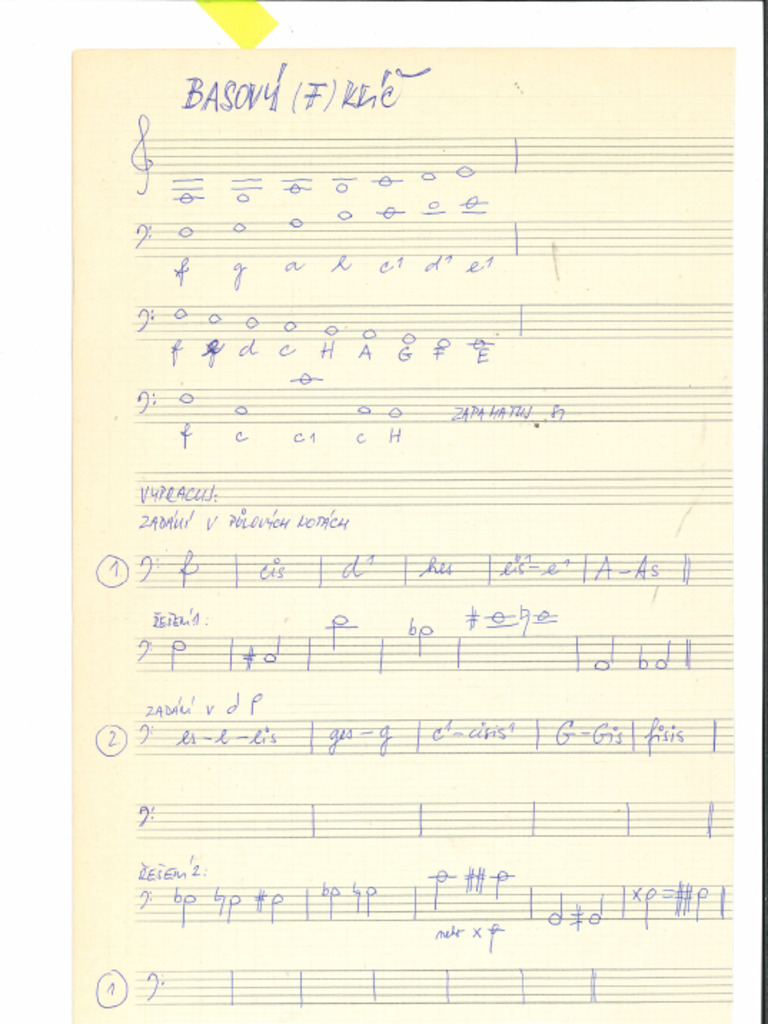 BASOVÝ (F) KLÍČ
f g a h c1 d1 e1
f e d c H A G F E
f c c1 c H ZAPAMATUJ SI
VYPRACUJ:
ZADÁNÍ V PŮLOVÝCH NOTÁCH
1 f cis d1 hes eis1-e1 A-As
ŘEŠENÍ 1:
ZADÁNÍ V
2 es-e-eis ges-g c1-cisis1 G-Gis fisis
ŘEŠENÍ 2:
nebo x
1